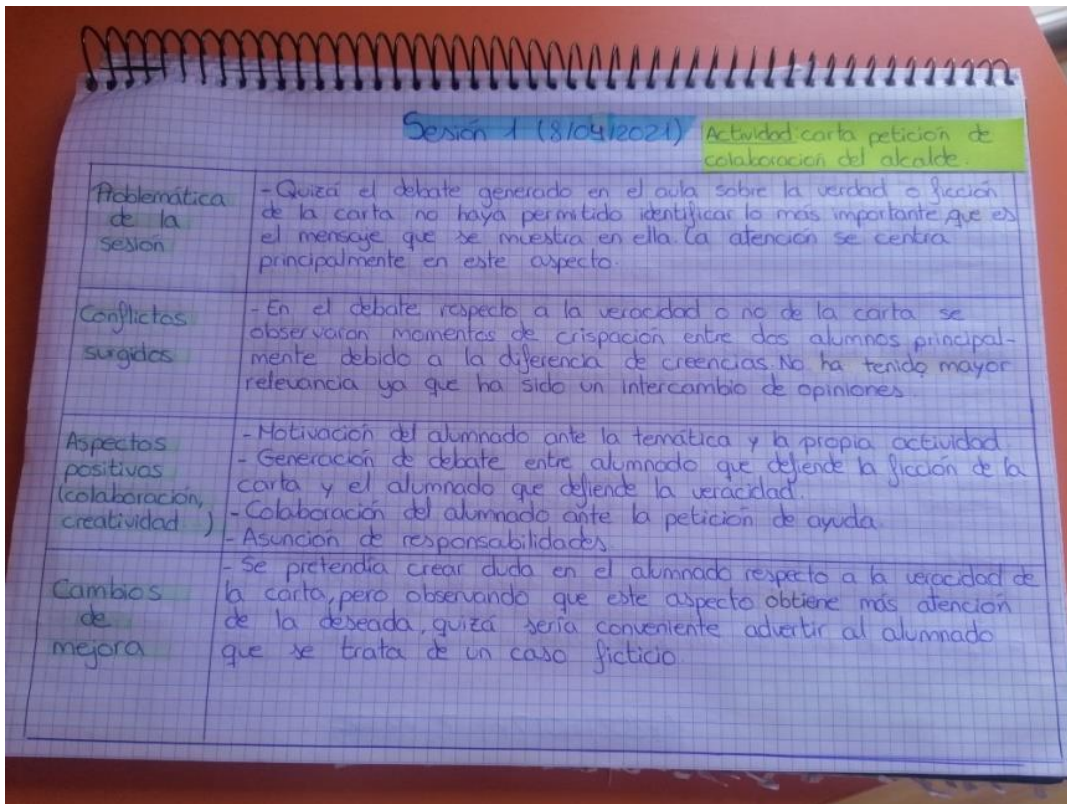 Sesión 1 (8/04/2021)
Actividad: carta petición de
colaboración del alcalde.
Problemática
de la
sesión
- Quizá el debate generado en el aula sobre la verdad o ficción
de la carta no haya permitido identificar lo más importante que es
el mensaje que se muestra en ella. La atención se centra
principalmente en este aspecto.
Conflictos
surgidos
- En el debate respecto a la verocidad o no de la carta se
observaron momentos de crispación entre dos alumnos principal-
mente debido a la diferencia de creencias. No ha tenido mayor
relevancia ya que ha sido un intercambio de opiniones.
Aspectos
positivos
(colaboración,
creatividad )
- Motivación del alumnado ante la temática y la propia actividad.
- Generación de debate entre alumnado que defiende la ficción de la
carta y el alumnado que defiende la veracidad.
- Colaboración del alumnado ante la petición de ayuda.
- Asunción de responsabilidades.
Cambios
de
mejora
- Se pretendía crear duda en el alumnado respecto a la verocidad de
la carta, pero observando que este aspecto obtiene más atención
de la deseada, quizá sería conveniente advertir al alumnado
que se trata de un caso ficticio.